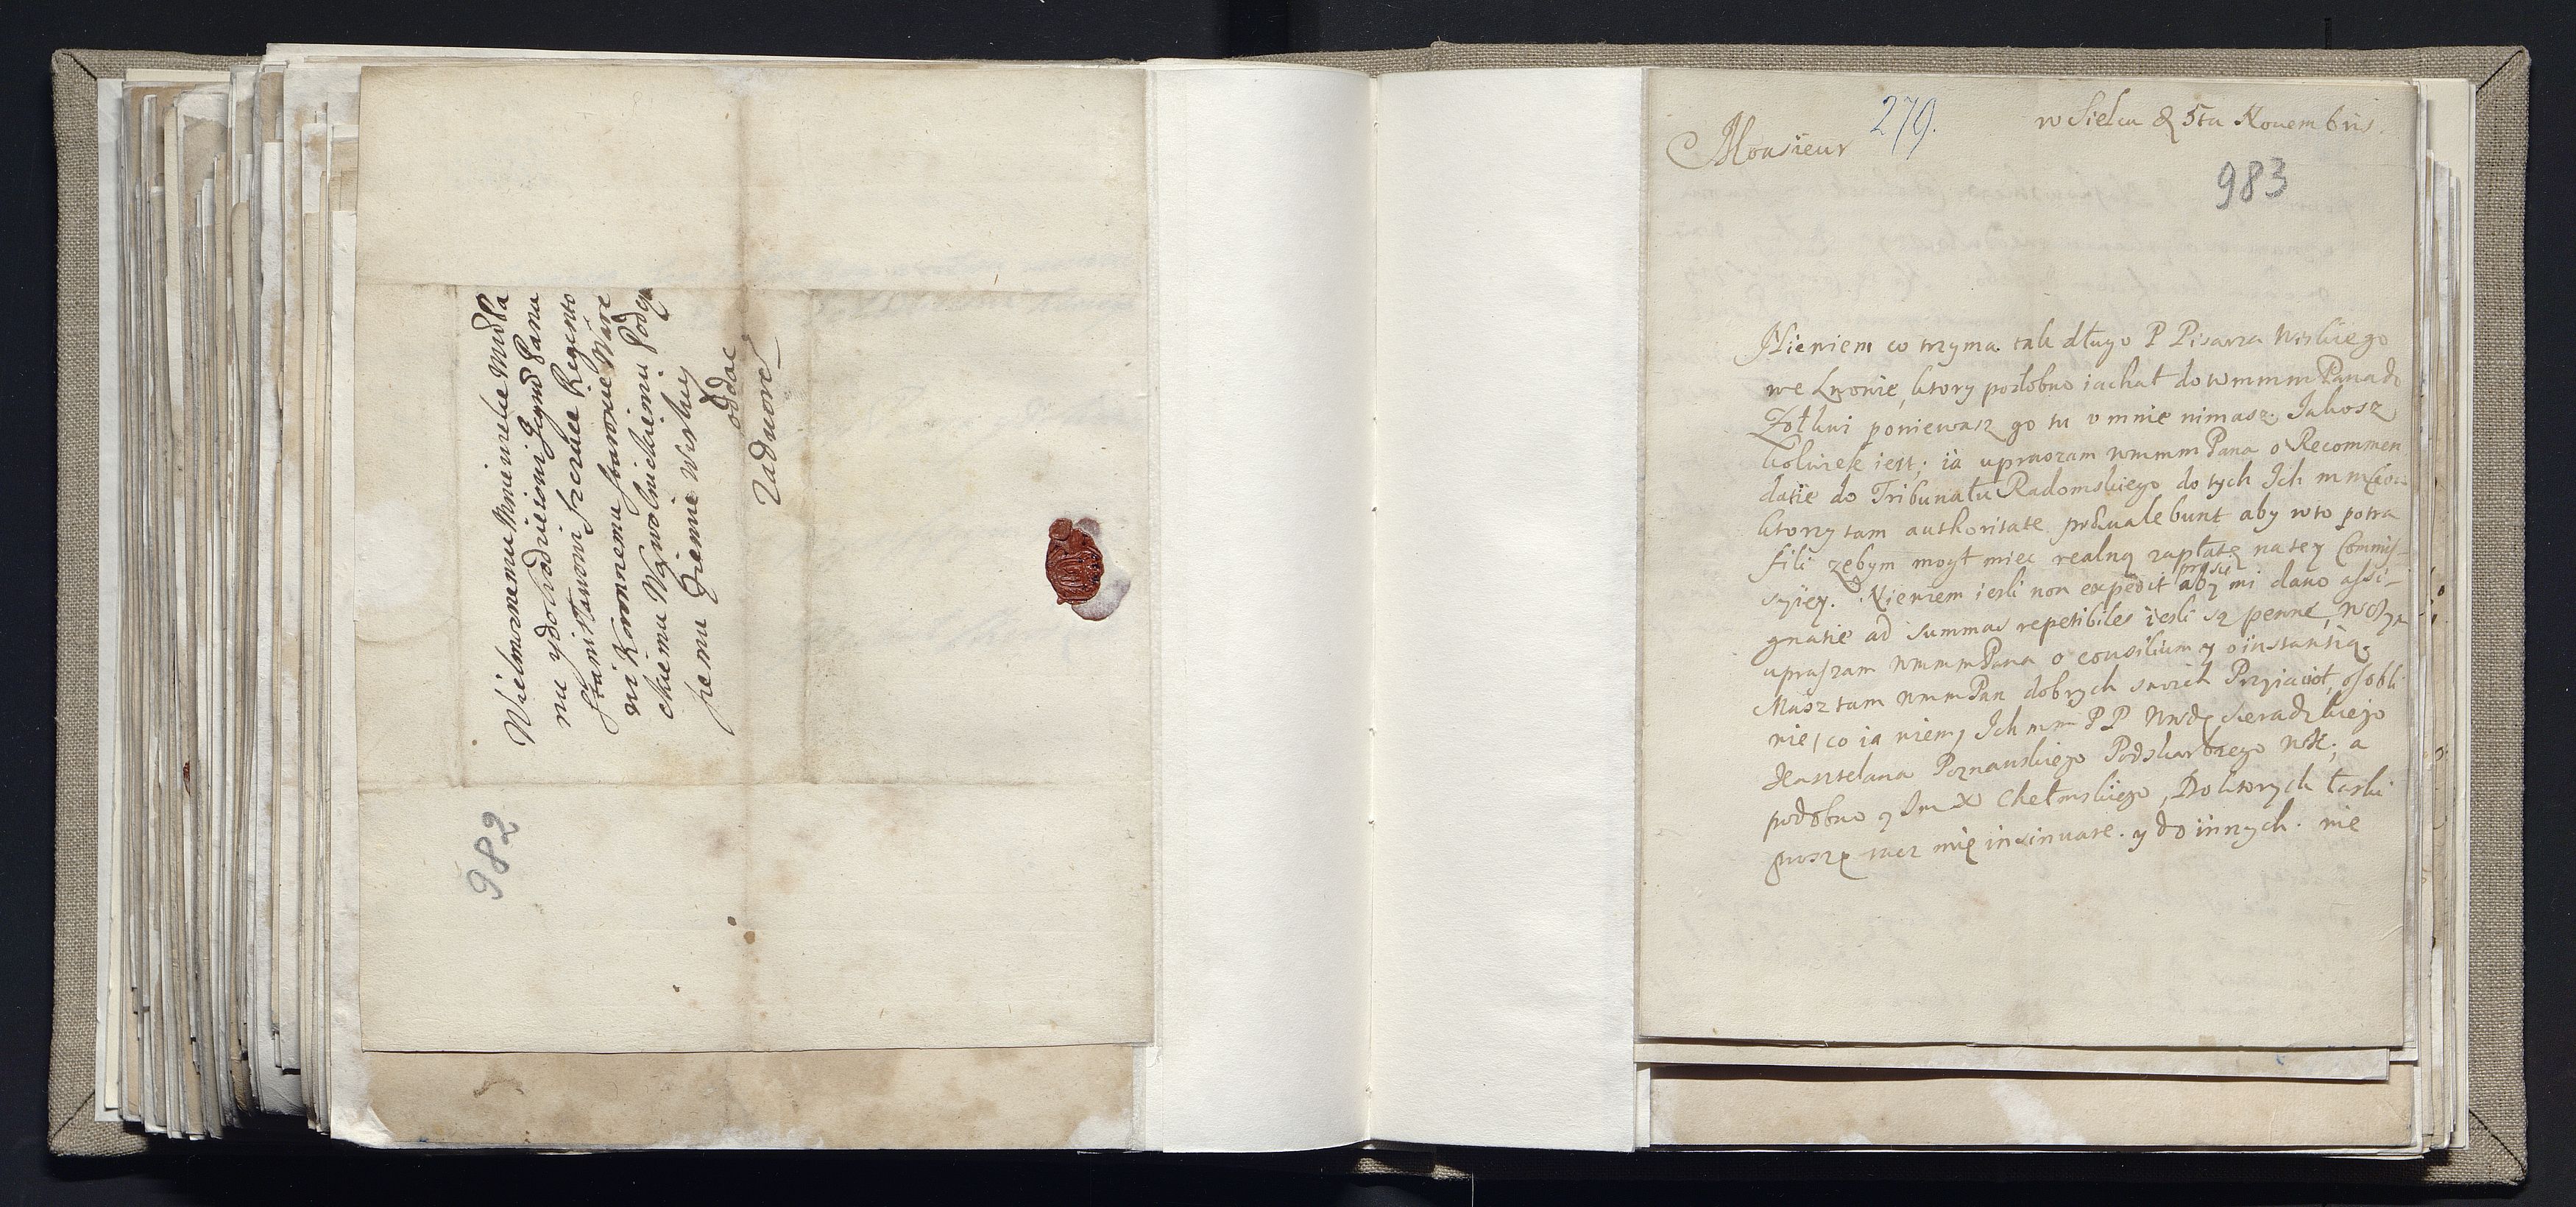 Wielmoznemu Mnie wielce Mśćwa
nu y dobrodzieiowi Jegmś Panu
Stanisławowi Szczuce Regento
wi Koronnemu Starowie Ware
ckiemu Wąwolnickiemu
pemu Ziemie Wiskiey
oddac
Zadworc
982
279.
w Sielcu d 5ta Nouembris.
Monsieur
983
Niewiem co trzyma tak długo P Pisarza Wiskiego
we Lwowie, ktory podobno iachał do wmmm Pana do
Zołkwi poniewasz go tu v mnie nimasz. Jakosz
kolwiek iest; ia upraszam wmmm Pana o Recommen
datie do Tribunału Radomskiego do tych Ich mm
ktorzy tam authoritate præualebunt aby w to potra
fili zębym mogł miec realną zapłatę na tey Commis-
syiey. Niewiem iesli non expedit prosić aby mi dano assi-
gnatie ad summas repetibiles iesli są pewne, w czym
upraszam wmmm Pana o consilium y o instantią.
Masz tam wmm Pan dobrych swoich Przyiacioł, osobli
wie, co ia wiem, Ich mm PP Wwdę Sieradzkiego
Kasztelana Poznanskiego Podskarbiego WK; a
podobno y Jm X Chełmskiego, Do ktorych łaski
proszę racz mię insinuare. y do innych. nie